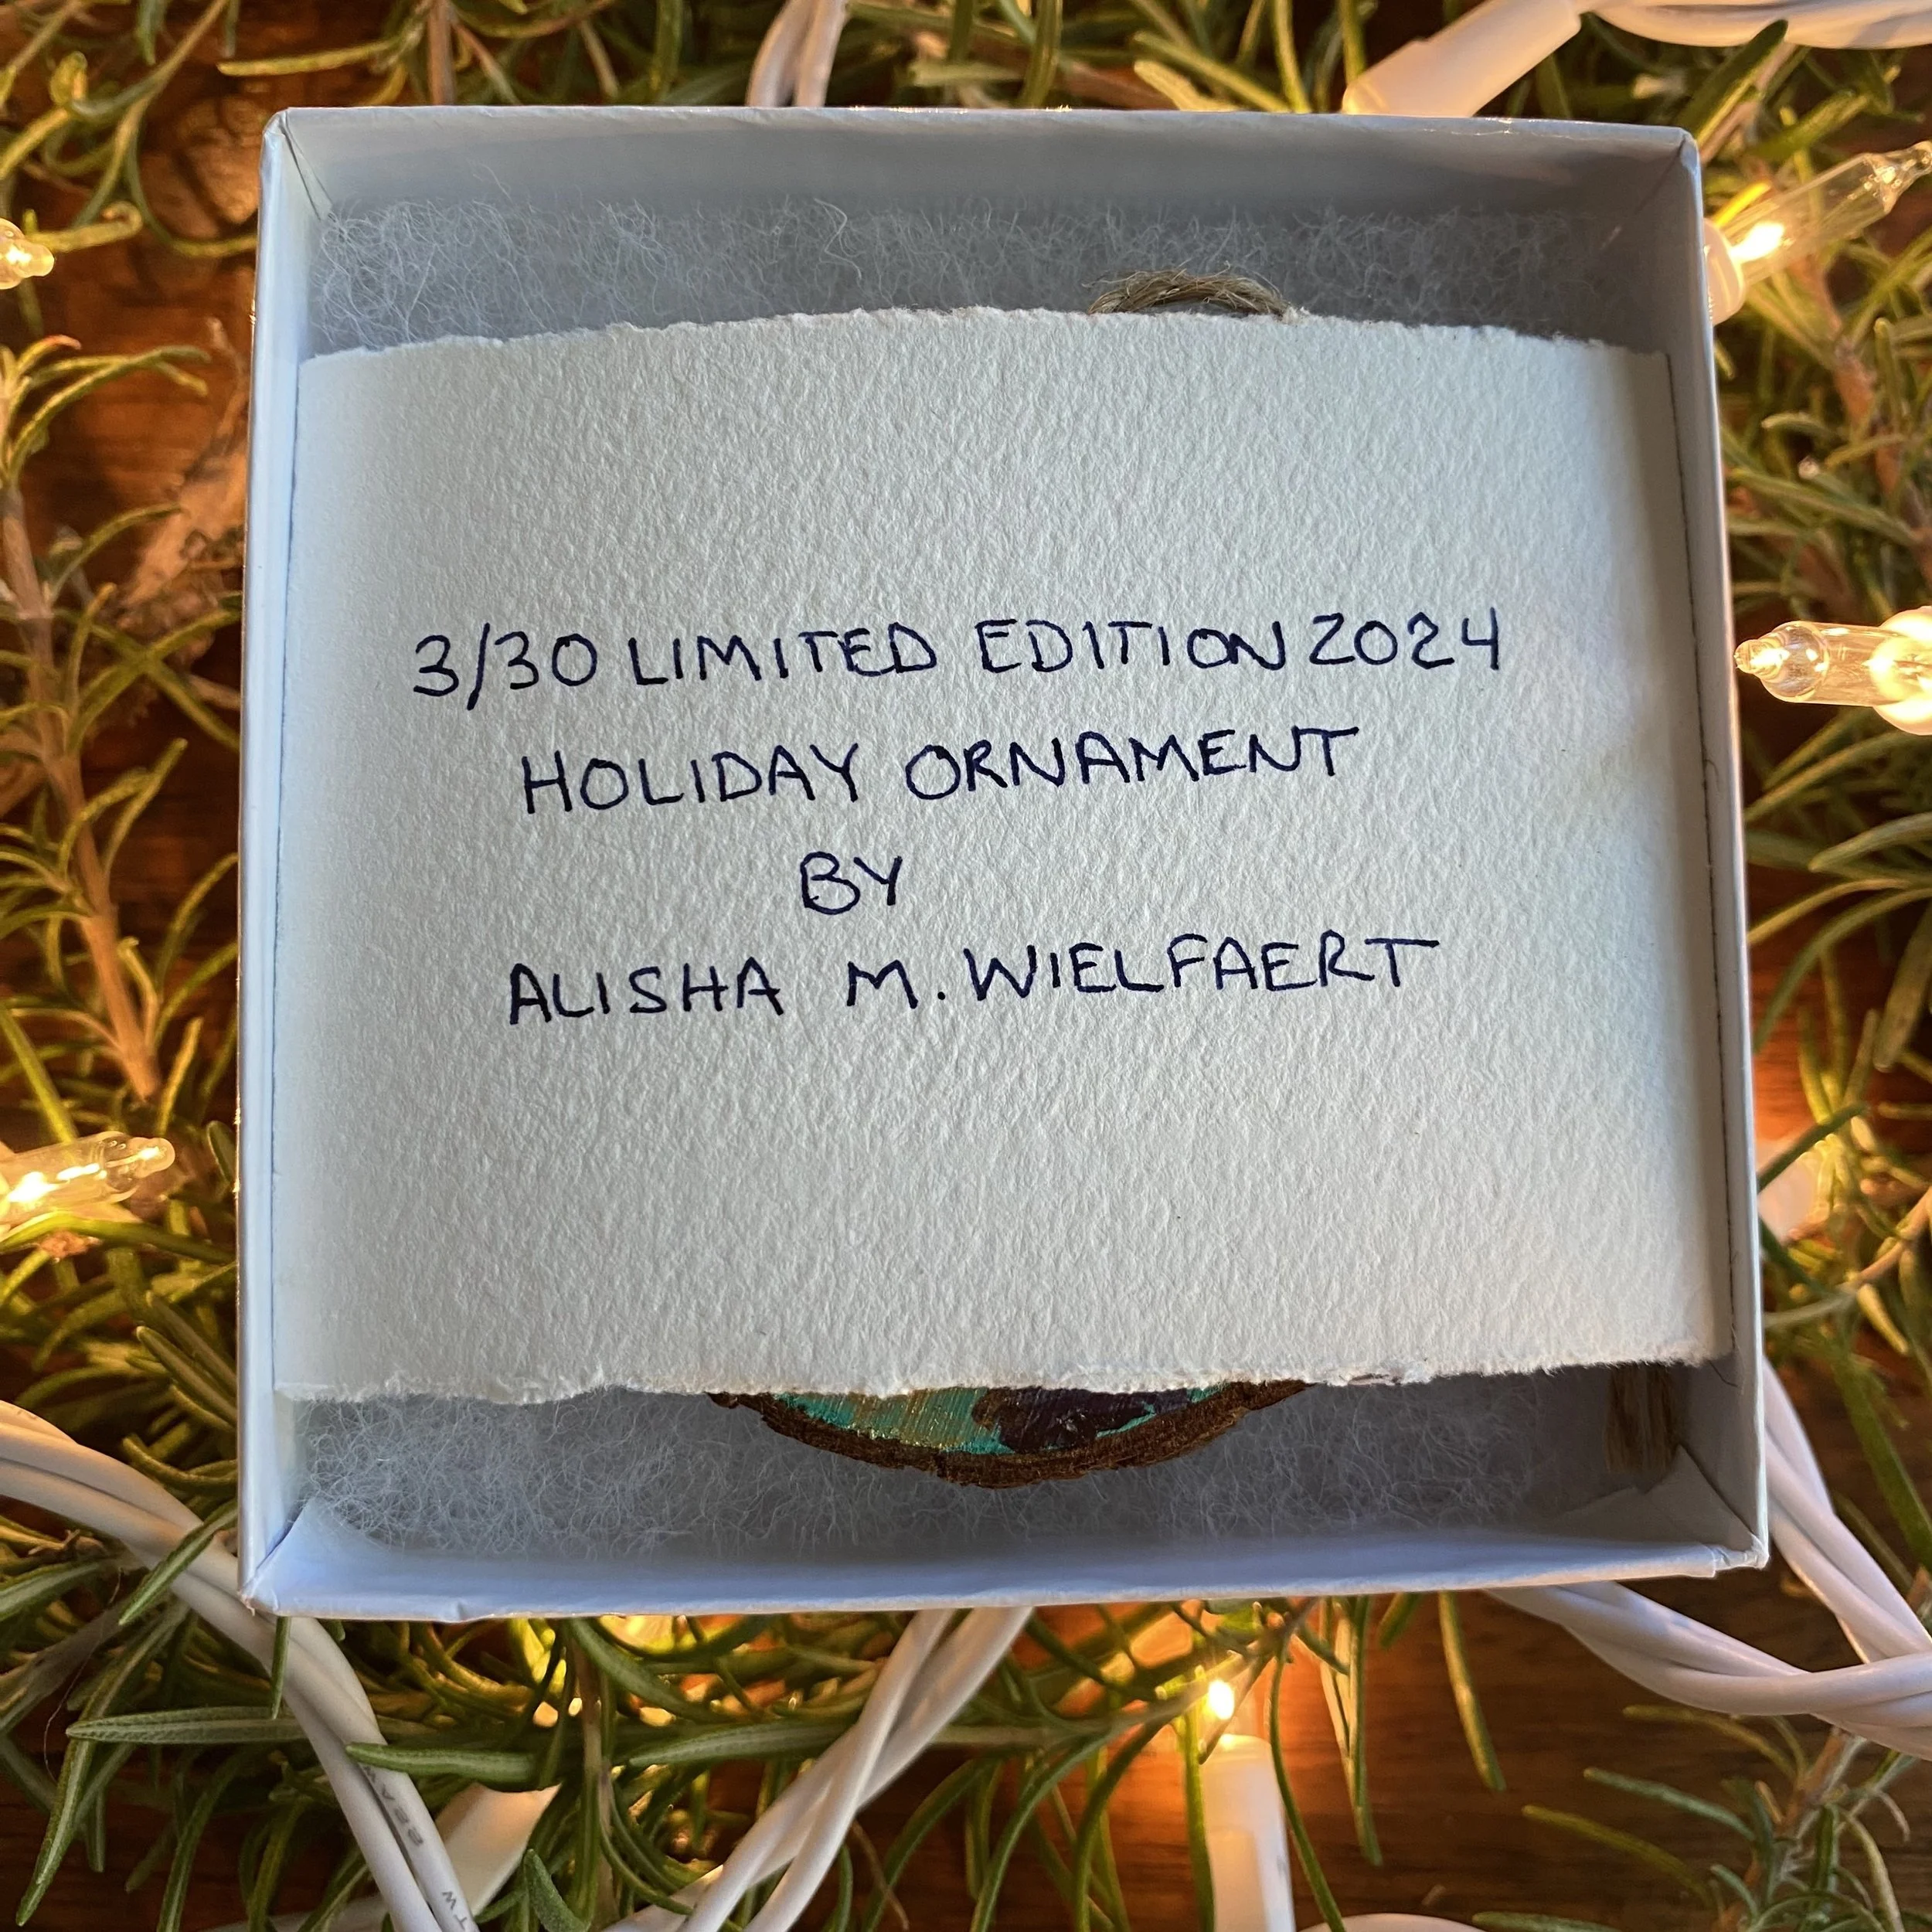 3/30 LIMITED EDITION 2024
HOLIDAY ORNAMENT
BY
ALISHA M. WIELFAERT